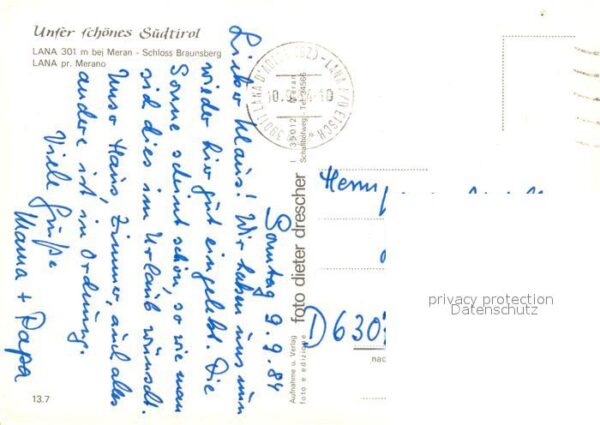 Unser schönes Südtirol
LANA 301 m bei Meran - Schloss Braunsberg
LANA pr. Merano
Sonntag 9.9.84
Lieber Klaus! Wir haben uns nun
wieder hier gut eingelebt. Die
Sonne scheint schön, so wie man
sich dies im Urlaub wünscht.
Unser Haus, Zimmer, auch alles
andere ist in Ordnung.
Viele Grüße
Mama + Papa
39011 LANA D'ADIGE (BZ) - LANA A/D ETSCH
10.9.84-10
I 39012 Meran
Schafferhofweg - Tel. 34566
foto dieter drescher
Aufnahme u. Verlag
foto e edizione
Herrn
D 630
nac
13.7
privacy protection
Datenschutz